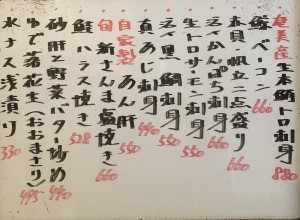 奄美産 生本鮪トロ刺身 880
鯨ベーコン 660
赤貝・帆立二点盛り 660
生トロサーモン刺身 550
活〆かんぱち刺身 550
活〆黒鯛刺身 550
真あじ刺身 440
自家製 あん肝 550
旬 新さんま塩焼き 660
鮭ハラス焼き 528
砂肝と野菜バター炒め 440
ゆで落花生(おおまさり) 495
水ナス浅漬り 330